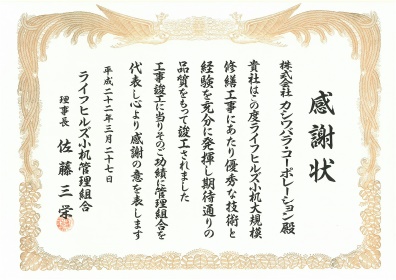 感謝状
株式会社 カシワバラ・コーポレーション殿
貴社はこの度ライフヒルズ小机大規模
修繕工事にあたり優秀な技術と
経験を充分に発揮し期待通りの
品質をもって竣工されました
工事竣工に当りそのご功績に管理組合を
代表し心より感謝の意を表します
平成二十二年三月二十七日
ライフヒルズ小机管理組合
理事長 佐藤三栄